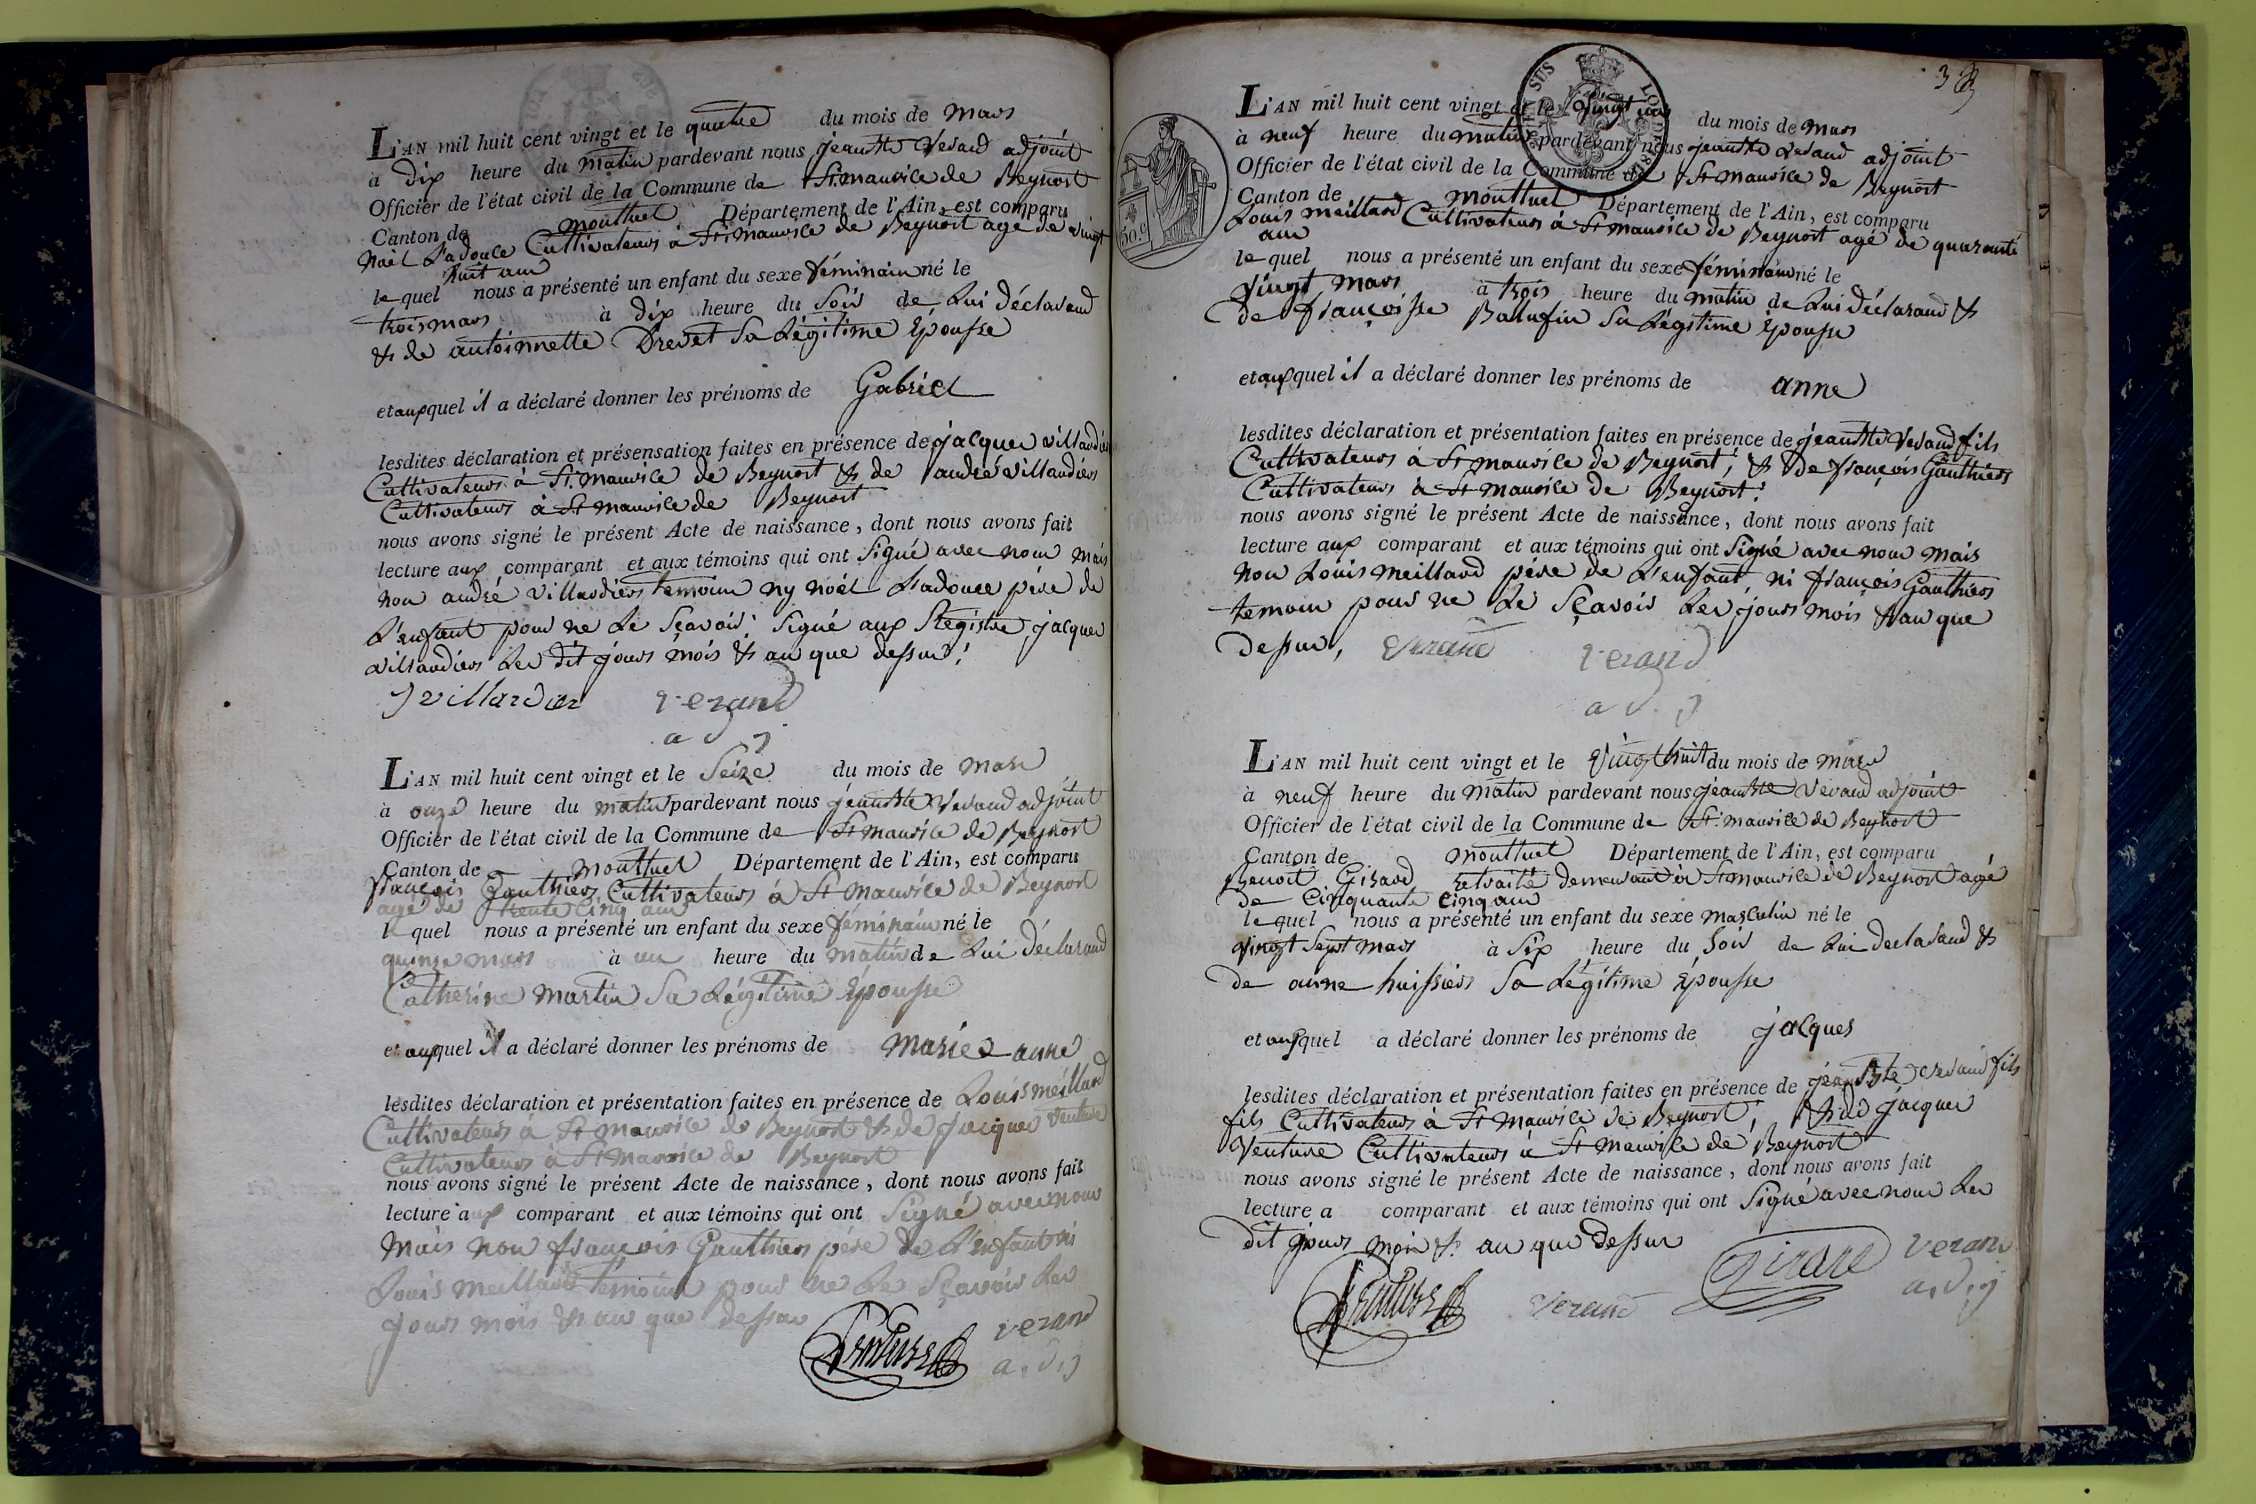 L'AN mil huit cent vingt et le quatre du mois de mars
à dix heure du matin pardevant nous jean Bte Verand adjoint
Officier de l'état civil de la Commune de St. maurice de Beynost
Canton de montluel Département de l'Ain, est comparu
Noël Ladouce Cultivateur à St. maurice de Beynost agé de vingt
huit ans
lequel nous a présenté un enfant du sexe féminain né le
trois mars à dix heure du soir de Lui déclarand
& de antoinnette Drevet Sa Légitime Épousse
et auxquel il a déclaré donner les prénoms de Gabriel
lesdites déclaration et présensation faites en présence de jacques villardier
Cultivateur à St. maurice de Beynost & de andré villardier
Cultivateur à St maurice de Beynost
nous avons signé le présent Acte de naissance, dont nous avons fait
lecture aux comparant et aux témoins qui ont Signé avec nous mais
non andré villardier temoin ny noël Ladouce père de
L'enfant pour ne Le Sçavoir. Signé aux Registre jacques
villardier Les dit jours mois & an que dessus.
J villardier verand
a d j
L'AN mil huit cent vingt et le Seize du mois de mars
à onze heure du matin pardevant nous jean Bte Verand adjoint
Officier de l'état civil de la Commune de St maurice de Beynost
Canton de montluel Département de l'Ain, est comparu
françois Gauthier Cultivateur à St maurice de Beynost
agé de trente cinq ans
lequel nous a présenté un enfant du sexe féminain né le
quinze mars à un heure du matin de Lui Déclarand
Catherine martin Sa Légitime Épousse
et auxquel il a déclaré donner les prénoms de marie anne
lesdites déclaration et présentation faites en présence de Louis meillard
Cultivateur à St maurice de Beynost & de jacques Venture
Cultivateur à St maurice de Beynost
nous avons signé le présent Acte de naissance, dont nous avons fait
lecture aux comparant et aux témoins qui ont Signé avec nous
mais non françois Gauthier père de L'enfant ni
Louis meillard témoin pour ne Le Sçavoir Les
jours mois & an que dessus
Venture verand
a. d. j
38
SUS LOI DE
50. c
L'AN mil huit cent vingt et le vingt un du mois de mars
à neuf heure du matin pardevant nous jean Bte Verand adjoint
Officier de l'état civil de la Commune de St maurice de Beynost
Canton de montluel Département de l'Ain, est comparu
Louis meillard Cultivateur à St maurice de Beynost agé de quarante
ans
lequel nous a présenté un enfant du sexe féminain né le
vingt mars à trois heure du matin de Lui déclarand &
de françoisse Balufin Sa Légitime épousse
et auxquel il a déclaré donner les prénoms de anne
lesdites déclaration et présentation faites en présence de jean Bte Verand fils
Cultivateur à St maurice de Beynost, & de françois Gauthier
Cultivateur à St maurice de Beynost.
nous avons signé le présent Acte de naissance, dont nous avons fait
lecture aux comparant et aux témoins qui ont Signé avec nous mais
non Louis meillard père de L'enfant ni françois Gauthier
temoin pour ne Le Sçavoir Les jours mois & an que
dessus, Verand verand
a d. j
L'AN mil huit cent vingt et le vingt huit du mois de mars
à neuf heure du matin pardevant nous jean Bte Verand adjoint
Officier de l'état civil de la Commune de St. maurice de Beynost
Canton de montluel Département de l'Ain, est comparu
Benoit Girard retraité demeurant à St maurice de Beynost agé
de Cinquante Cinq ans
lequel nous a présenté un enfant du sexe masculin né le
vingt Sept mars à Six heure du Soir de Lui declarand &
de anne huissier Sa Légitime Épousse
et auxquel a déclaré donner les prénoms de jacques
lesdites déclaration et présentation faites en présence de jean Bte Verand fils
fils Cultivateur à St maurice de Beynost, & de jacques
Venture Cultivateur à St maurice de Beynost
nous avons signé le présent Acte de naissance, dont nous avons fait
lecture a comparant et aux témoins qui ont Signé avec nous Les
dit jours mois & an que dessus
Venture Verand Girard verand
a. d. j